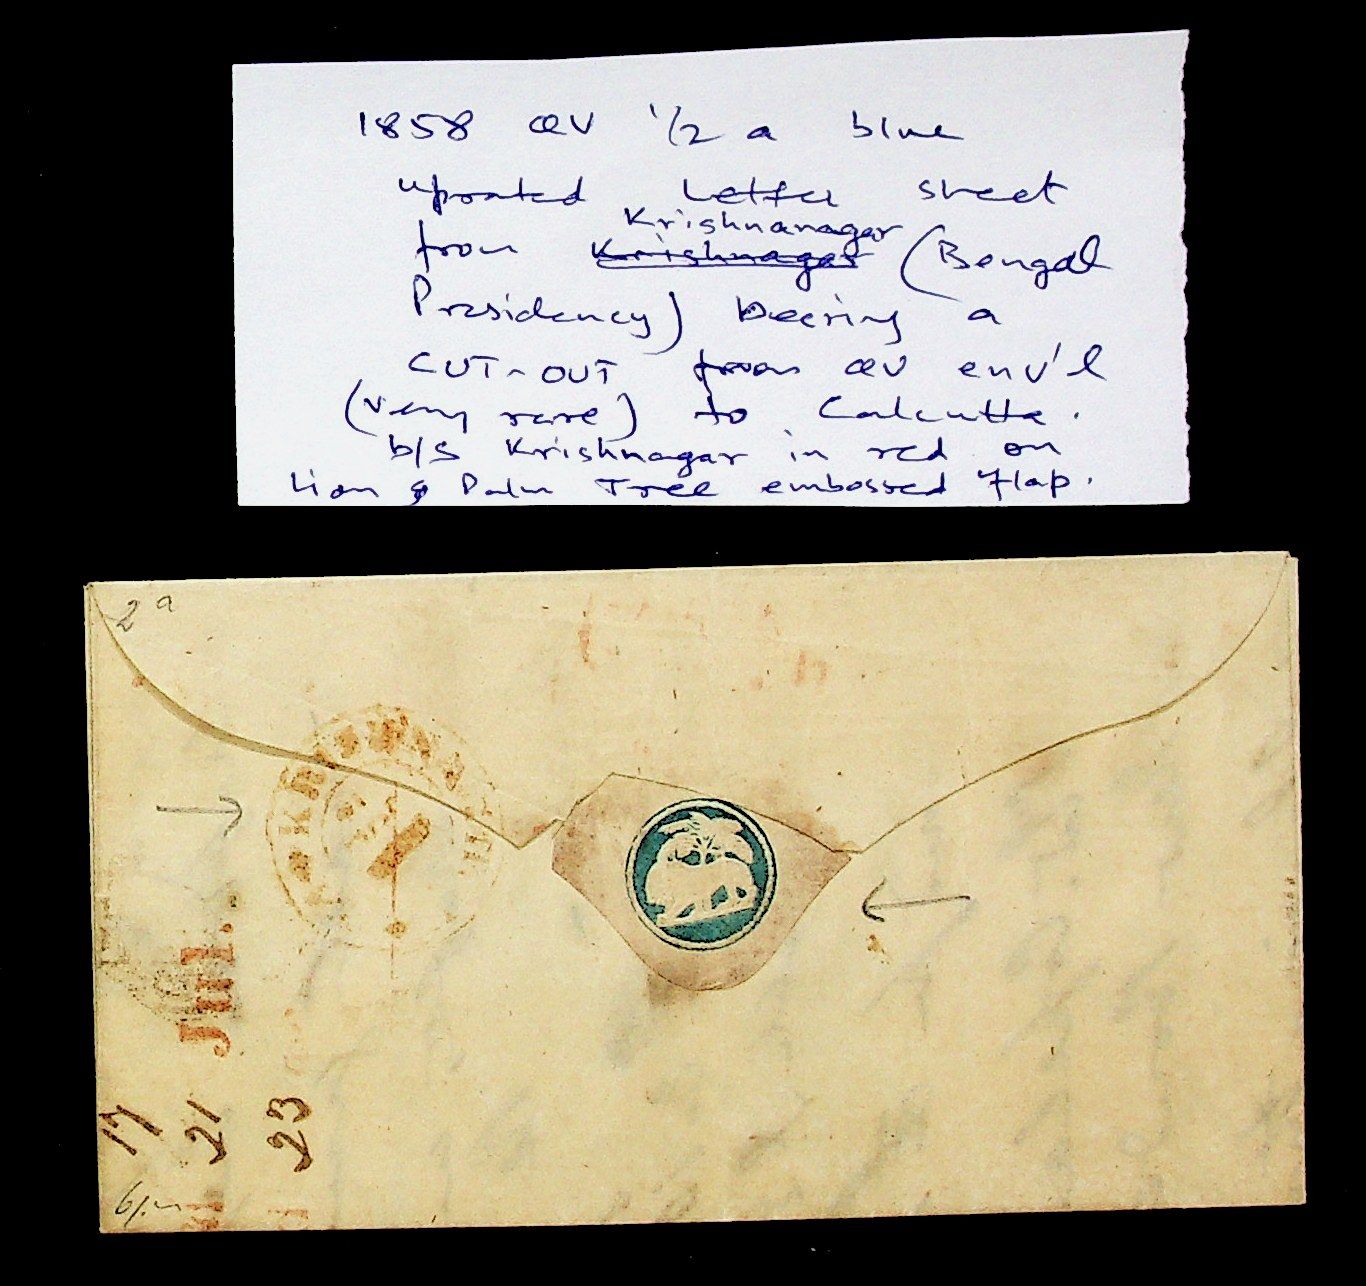 1858 QV 1/2 a blue
uprated Letter sheet
Krishnanagar
from Krishnagar (Bengal
Presidency) bearing a
CUT-OUT from QV env'l
(very rare) to Calcutta.
b/s Krishnagar in red on
Lion & Palm Tree embossed flap.
2 a
JUL.
17
21
23